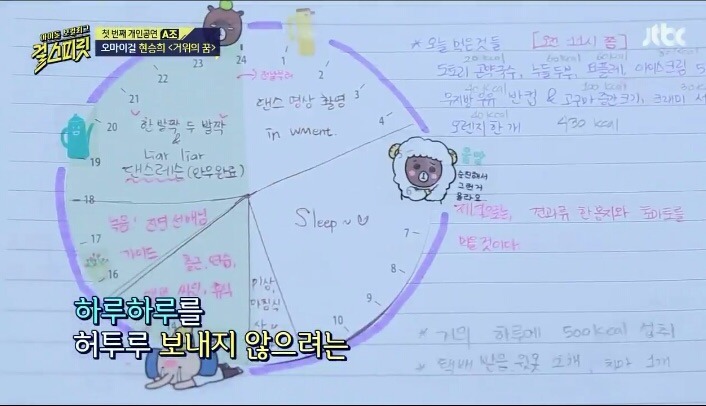 아이돌 보컬리그
걸스피릿
첫 번째 개인공연 A조
오마이걸 현승희 <거위의 꿈>
jtbc
24
1
2
3
4
6
7
8
9
10
15
16
17
18
19
20
21
22
23
댄스 영상 촬영
in wment.
한 발짝 두 발짝
&
liar liar
댄스레슨 (완무완료)
Sleep~
녹음!
선배님
가이드
출근, 연습,
휴식
이상,
아침식
사
* 오늘 먹은것들 [오전 11시 쯤]
20kcal
60kcal
도토리 곤약국수, 누들두부,
아이스크림
40kcal
100kcal
무지방 우유 반 컵 & 고구마
크기, 크래미
40 kcal
오렌지 한 개
430 kcal
음메
순진해서
그런거
몰라요
견과류 한 봉지와 토마토를
먹을 것이다
* 거의 하루에 500kcal 섭취
* 택배
1개
하루하루를
허투루 보내지 않으려는